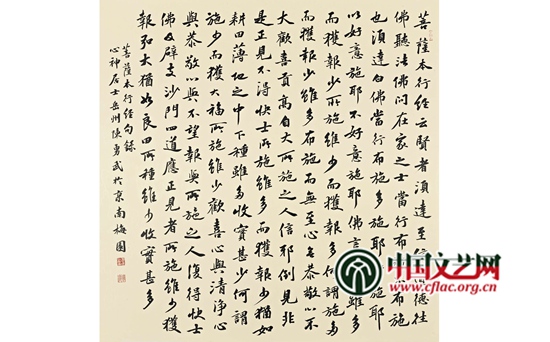 菩薩本行經云賢者湏達至信德往
佛聽法佛問在家之士當行布布施
也湏達白佛當行布施多施耶施耶
以好意施耶不好意施耶佛言雖多
而獲報少所施雖少而獲何謂施多
而獲報少雖多布施而無至心无恭敬以不
大歡喜貢高自大所施之人信耶倒見非
是正見不得快士所施雖多而獲報少猶如
耕田薄地之中下種雖多收實甚少何謂
施少而獲大福所施雖少歡喜心與清淨心
與恭敬以與不望報與所施之人復得快士
佛及辟支沙門四道應正見者所施雖少獲
報弘大猶如良田所種雖少收實甚多
菩薩本行經句錄
心神居士岳州陳勇武於京南梅園
中国文艺网
www.cflac.org.cn